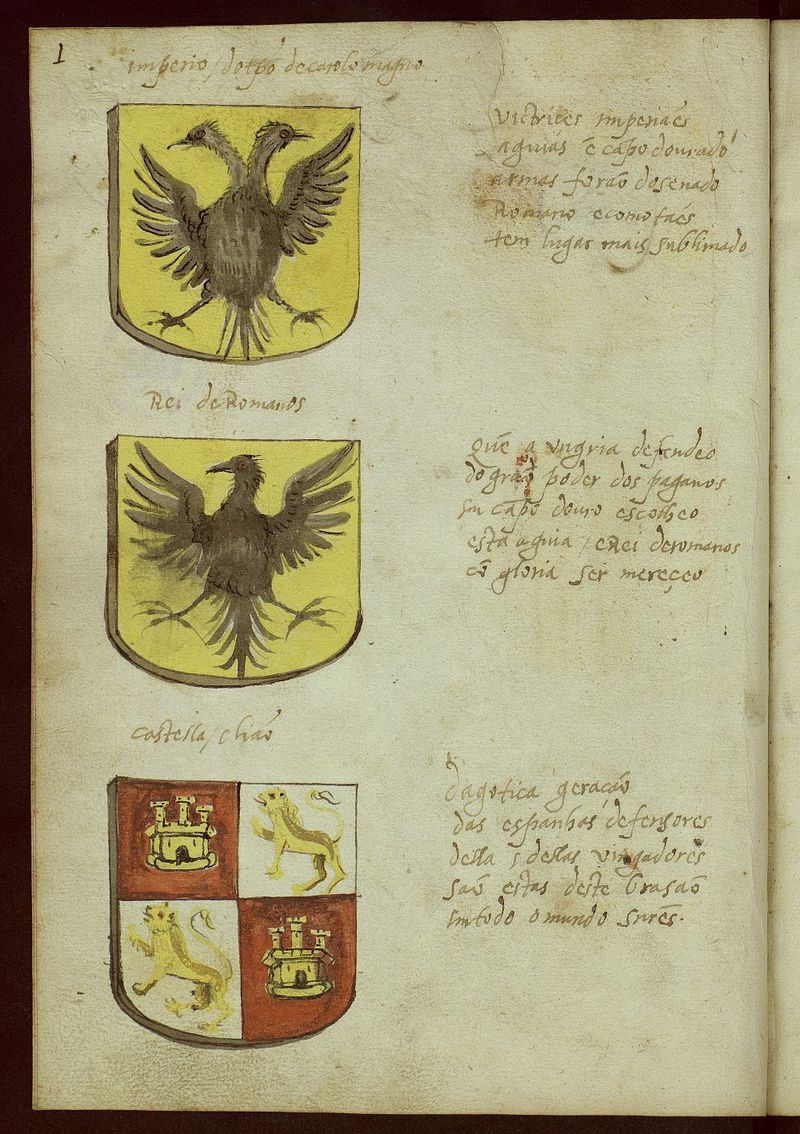 1
imperio / do tpõ de carolo magno
victrices imperiaẽs
aguias ẽ cãpo dourado
armas forão do senado
Romano e como taẽs
tem lugar mais sublimado
Rei de Romanos
Que a ungria defendeo
do grão poder dos paganos
em cãpo douro escolheo
esta aguia / e Rei de romanos
cõ gloria ser mereçeo
castella / e lião
da gotica geração
das espanhas defensores
della e dellas vingadores
são estas deste brasão
em todo o mundo